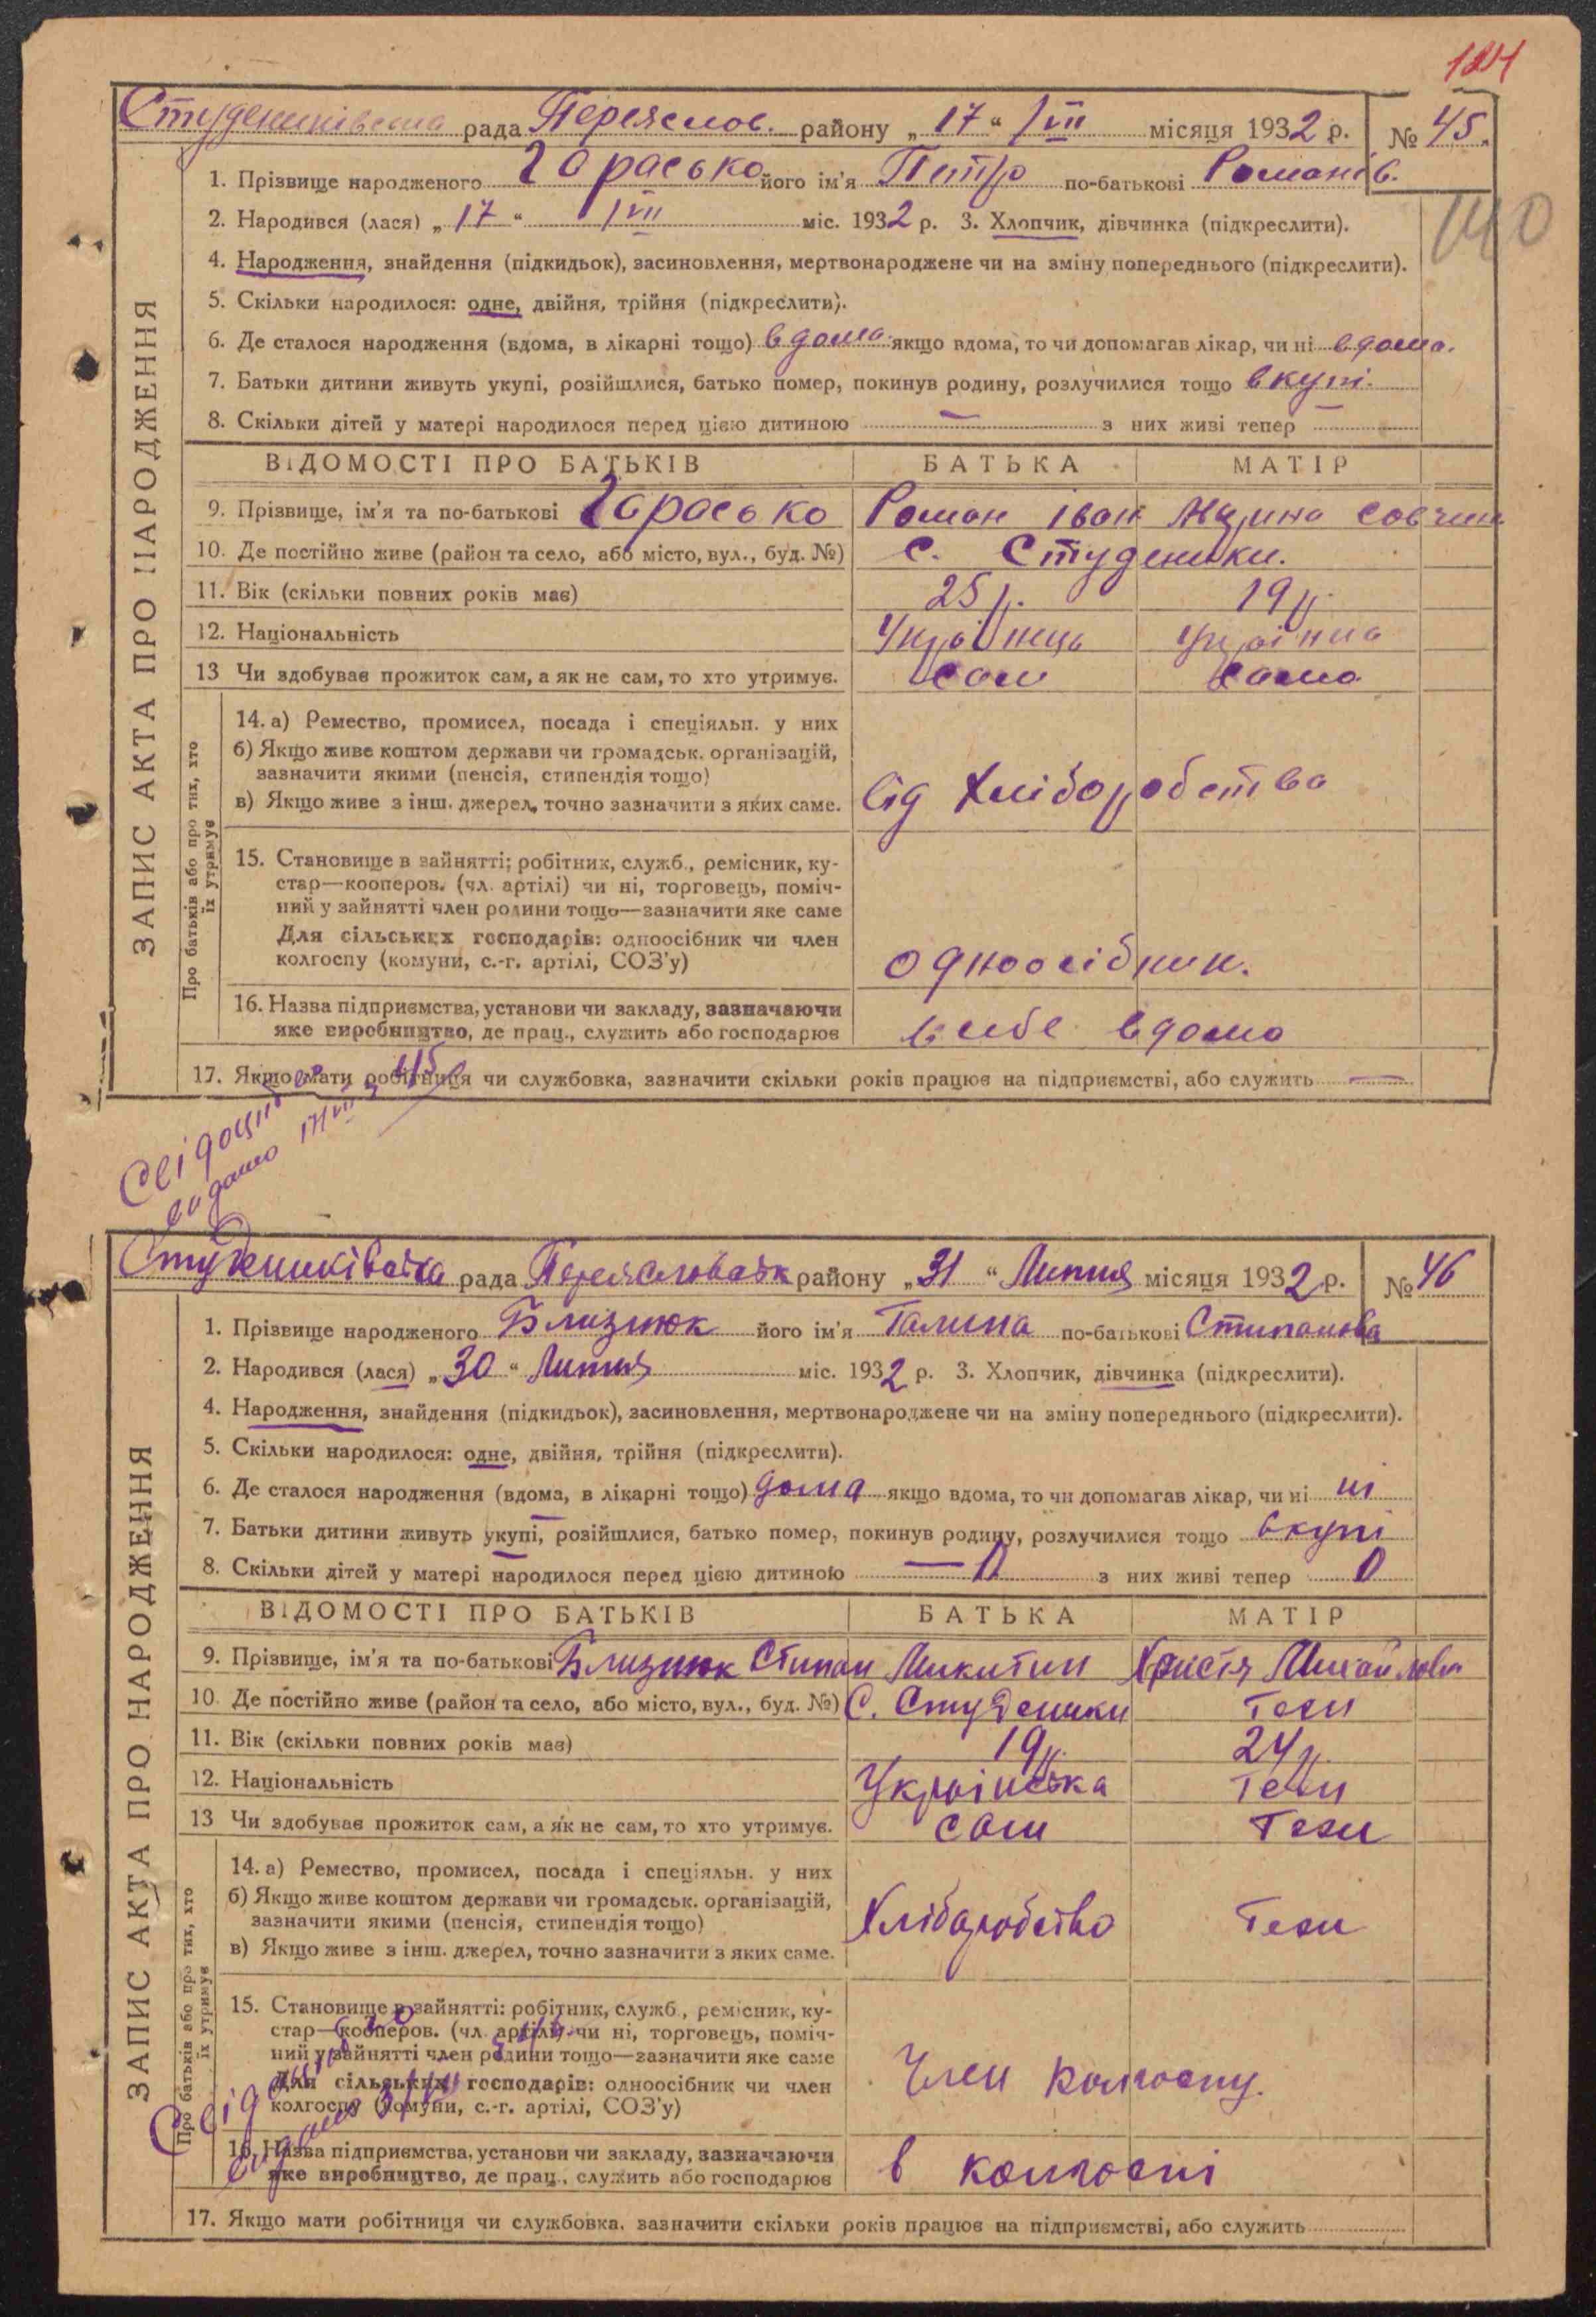 Студениківська рада Переяслов. району „17“ /VII місяця 1932 р. № 45.
1. Прізвище народженого Гарасько його ім'я Петро по-батькові Романів.
2. Народився (лася) „17“ /VII міс. 1932 р. 3. Хлопчик, дівчинка (підкреслити).
140
4. Народження, знайдення (підкидьок), засиновлення, мертвонароджене чи на зміну попереднього (підкреслити).
5. Скільки народилося: одне, двійня, трійня (підкреслити).
6. Де сталося народження (вдома, в лікарні тощо) вдома якщо вдома, то чи допомагав лікар, чи ні вдома.
7. Батьки дитини живуть укупі, розійшлися, батько помер, покинув родину, розлучилися тощо вкупі.
8. Скільки дітей у матері народилося перед цією дитиною — з них живі тепер —
ВІДОМОСТІ ПРО БАТЬКІВ БАТЬКА МАТІР
9. Прізвище, ім'я та по-батькові Гарасько Роман Іван
10. Де постійно живе (район та село, або місто, вул., буд. №) с. Студеники.
11. Вік (скільки повних років має) 25 р. 19 р.
12. Національність Українець Українка
13 Чи здобував прожиток сам, а як не сам, то хто утримує. сам сама
14. а) Ремество, промисел, посада і спеціяльн. у них
б) Якщо живе коштом держави чи громадськ. організацій,
зазначити якими (пенсія, стипендія тощо)
в) Якщо живе з інш. джерел, точно зазначити з яких саме.
від хліборобства
15. Становище в зайнятті; робітник, служб., ремісник, ку-
стар—кооперов. (чл. артілі) чи ні, торговець, поміч-
ний у зайнятті член родини тощо—зазначити яке саме
Для сільських господарів: одноосібник чи член
колгоспу (комуни, с.-г. артілі, СОЗ'у)
одноосібник.
16. Назва підприємства, установи чи закладу, зазначаючи
яке виробництво, де прац., служить або господарює
в себе вдома
17. Якщо мати робітниця чи службовка, зазначити скільки років працює на підприємстві, або служить —
ЗАПИС АКТА ПРО НАРОДЖЕННЯ
Про батьків або про тих, хто
їх утримує
видано 17/VII 45
Студениківська рада Переяславськ району „31“ Липня місяця 1932 р. № 46
1. Прізвище народженого Близнюк його ім'я Галина по-батькові Степанова
2. Народився (лася) „30“ Липня міс. 1932 р. 3. Хлопчик, дівчинка (підкреслити).
4. Народження, знайдення (підкидьок), засиновлення, мертвонароджене чи на зміну попереднього (підкреслити).
5. Скільки народилося: одне, двійня, трійня (підкреслити).
6. Де сталося народження (вдома, в лікарні тощо) дома якщо вдома, то чи допомагав лікар, чи ні ні
7. Батьки дитини живуть укупі, розійшлися, батько помер, покинув родину, розлучилися тощо вкупі
8. Скільки дітей у матері народилося перед цією дитиною — 0 з них живі тепер 0
ВІДОМОСТІ ПРО БАТЬКІВ БАТЬКА МАТІР
9. Прізвище, ім'я та по-батькові Близнюк Степан Микитин Христя Михайлов
10. Де постійно живе (район та село, або місто, вул., буд. №) С. Студеники Теж
11. Вік (скільки повних років має) 19 р. 24 р.
12. Національність Українська Теж
13 Чи здобував прожиток сам, а як не сам, то хто утримує. сам Теж
14. а) Ремество, промисел, посада і спеціяльн. у них
б) Якщо живе коштом держави чи громадськ. організацій,
зазначити якими (пенсія, стипендія тощо)
в) Якщо живе з інш. джерел, точно зазначити з яких саме.
Хліборобство Теж
15. Становище в зайнятті: робітник, служб., ремісник, ку-
стар—кооперов. (чл. артілі) чи ні, торговець, поміч-
ний у зайнятті член родини тощо—зазначити яке саме
Для сільських господарів: одноосібник чи член
колгоспу (комуни, с.-г. артілі, СОЗ'у)
Член колгоспу.
16. Назва підприємства, установи чи закладу, зазначаючи
яке виробництво, де прац., служить або господарює
в колгоспі
17. Якщо мати робітниця чи службовка, зазначити скільки років працює на підприємстві, або служить
ЗАПИС АКТА ПРО НАРОДЖЕННЯ
Про батьків або про тих, хто
їх утримує